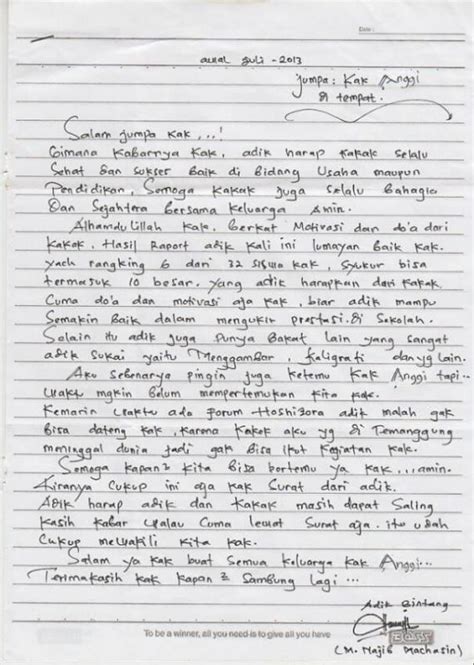 Date:
awal Juli - 2013
Jumpa: Kak Anggi
di tempat.
Salam jumpa kak...!
Gimana kabarnya kak, adik harap kakak selalu
Sehat dan sukses Baik di Bidang Usaha maupun
Pendidikan, Semoga kakak juga selalu Bahagia
Dan Sejahtera Bersama keluarga Amin.
Alhamdulillah kak. Berkat Motivasi dan do'a dari
kakak. Hasil Raport adik kali ini lumayan Baik kak.
yach rangking 6 dari 32 siswa kak, syukur bisa
termasuk 10 besar, yang adik harapkan dari kakak.
Cuma do'a dan motivasi aja kak, biar adik mampu
Semakin Baik dalam mengukir prestasi di Sekolah.
Selain itu adik juga punya Bakat lain yang sangat
adik sukai yaitu Menggambar, Kaligrafi dan yg lain.
Aku sebenarya pingin juga ketemu Kak Anggi tapi..
waktu mgkin Belum mempertemukan kita kak.
Kemarin waktu ada forum Hoshizora adik malah gak
Bisa dateng kak, karena Kakek aku yg di Temanggung
meninggal dunia jadi gak bisa ikut kegiatan kak.
Semoga kapan2 kita Bisa bertemu ya kak...amin.
Kiranya Cukup ini aja kak Surat dari adik.
Adik harap adik dan kakak masih dapat Saling
kasih kabar walau Cuma lewat Surat aja. itu udah
Cukup mewakili kita kak.
Salam ya kak buat Semua keluarga kak Anggi...
Terimakasih kak kapan2 Sambung lagi...
Adik Bintang
To be a winner, all you need is to give all you have
(M. Najib Machasin)